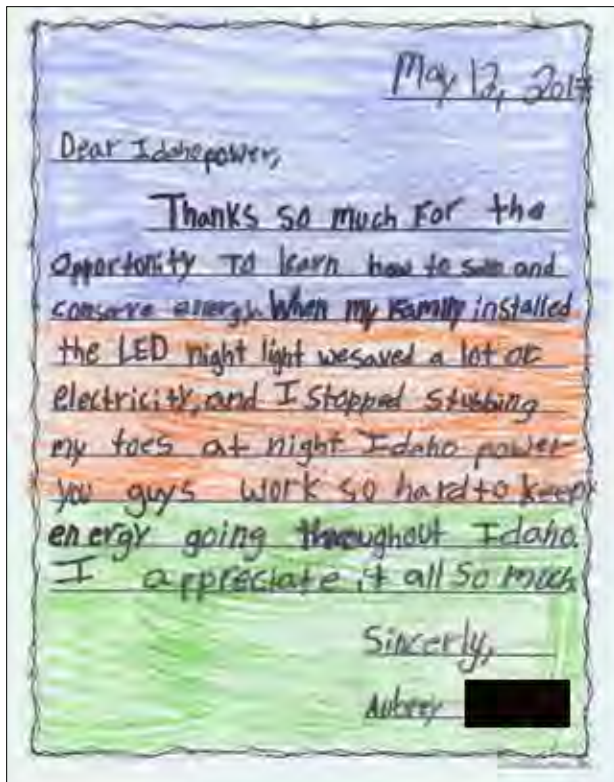 May 12, 2017
Dear Idahopower,
Thanks so much For the
Opportonity To learn how to save and
conserve energy. When my Family installed
the LED night light we saved a lot of
electricity, and I Stopped Stubbing
my toes at night Idaho power
you guys work so hard to keep
energy going throughout Idaho.
I appreciate it all So much
Sincerly,
Aubrey